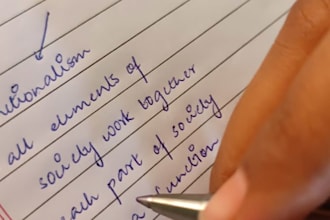 ctionalism
all elements of
society work together
each part of society
a function